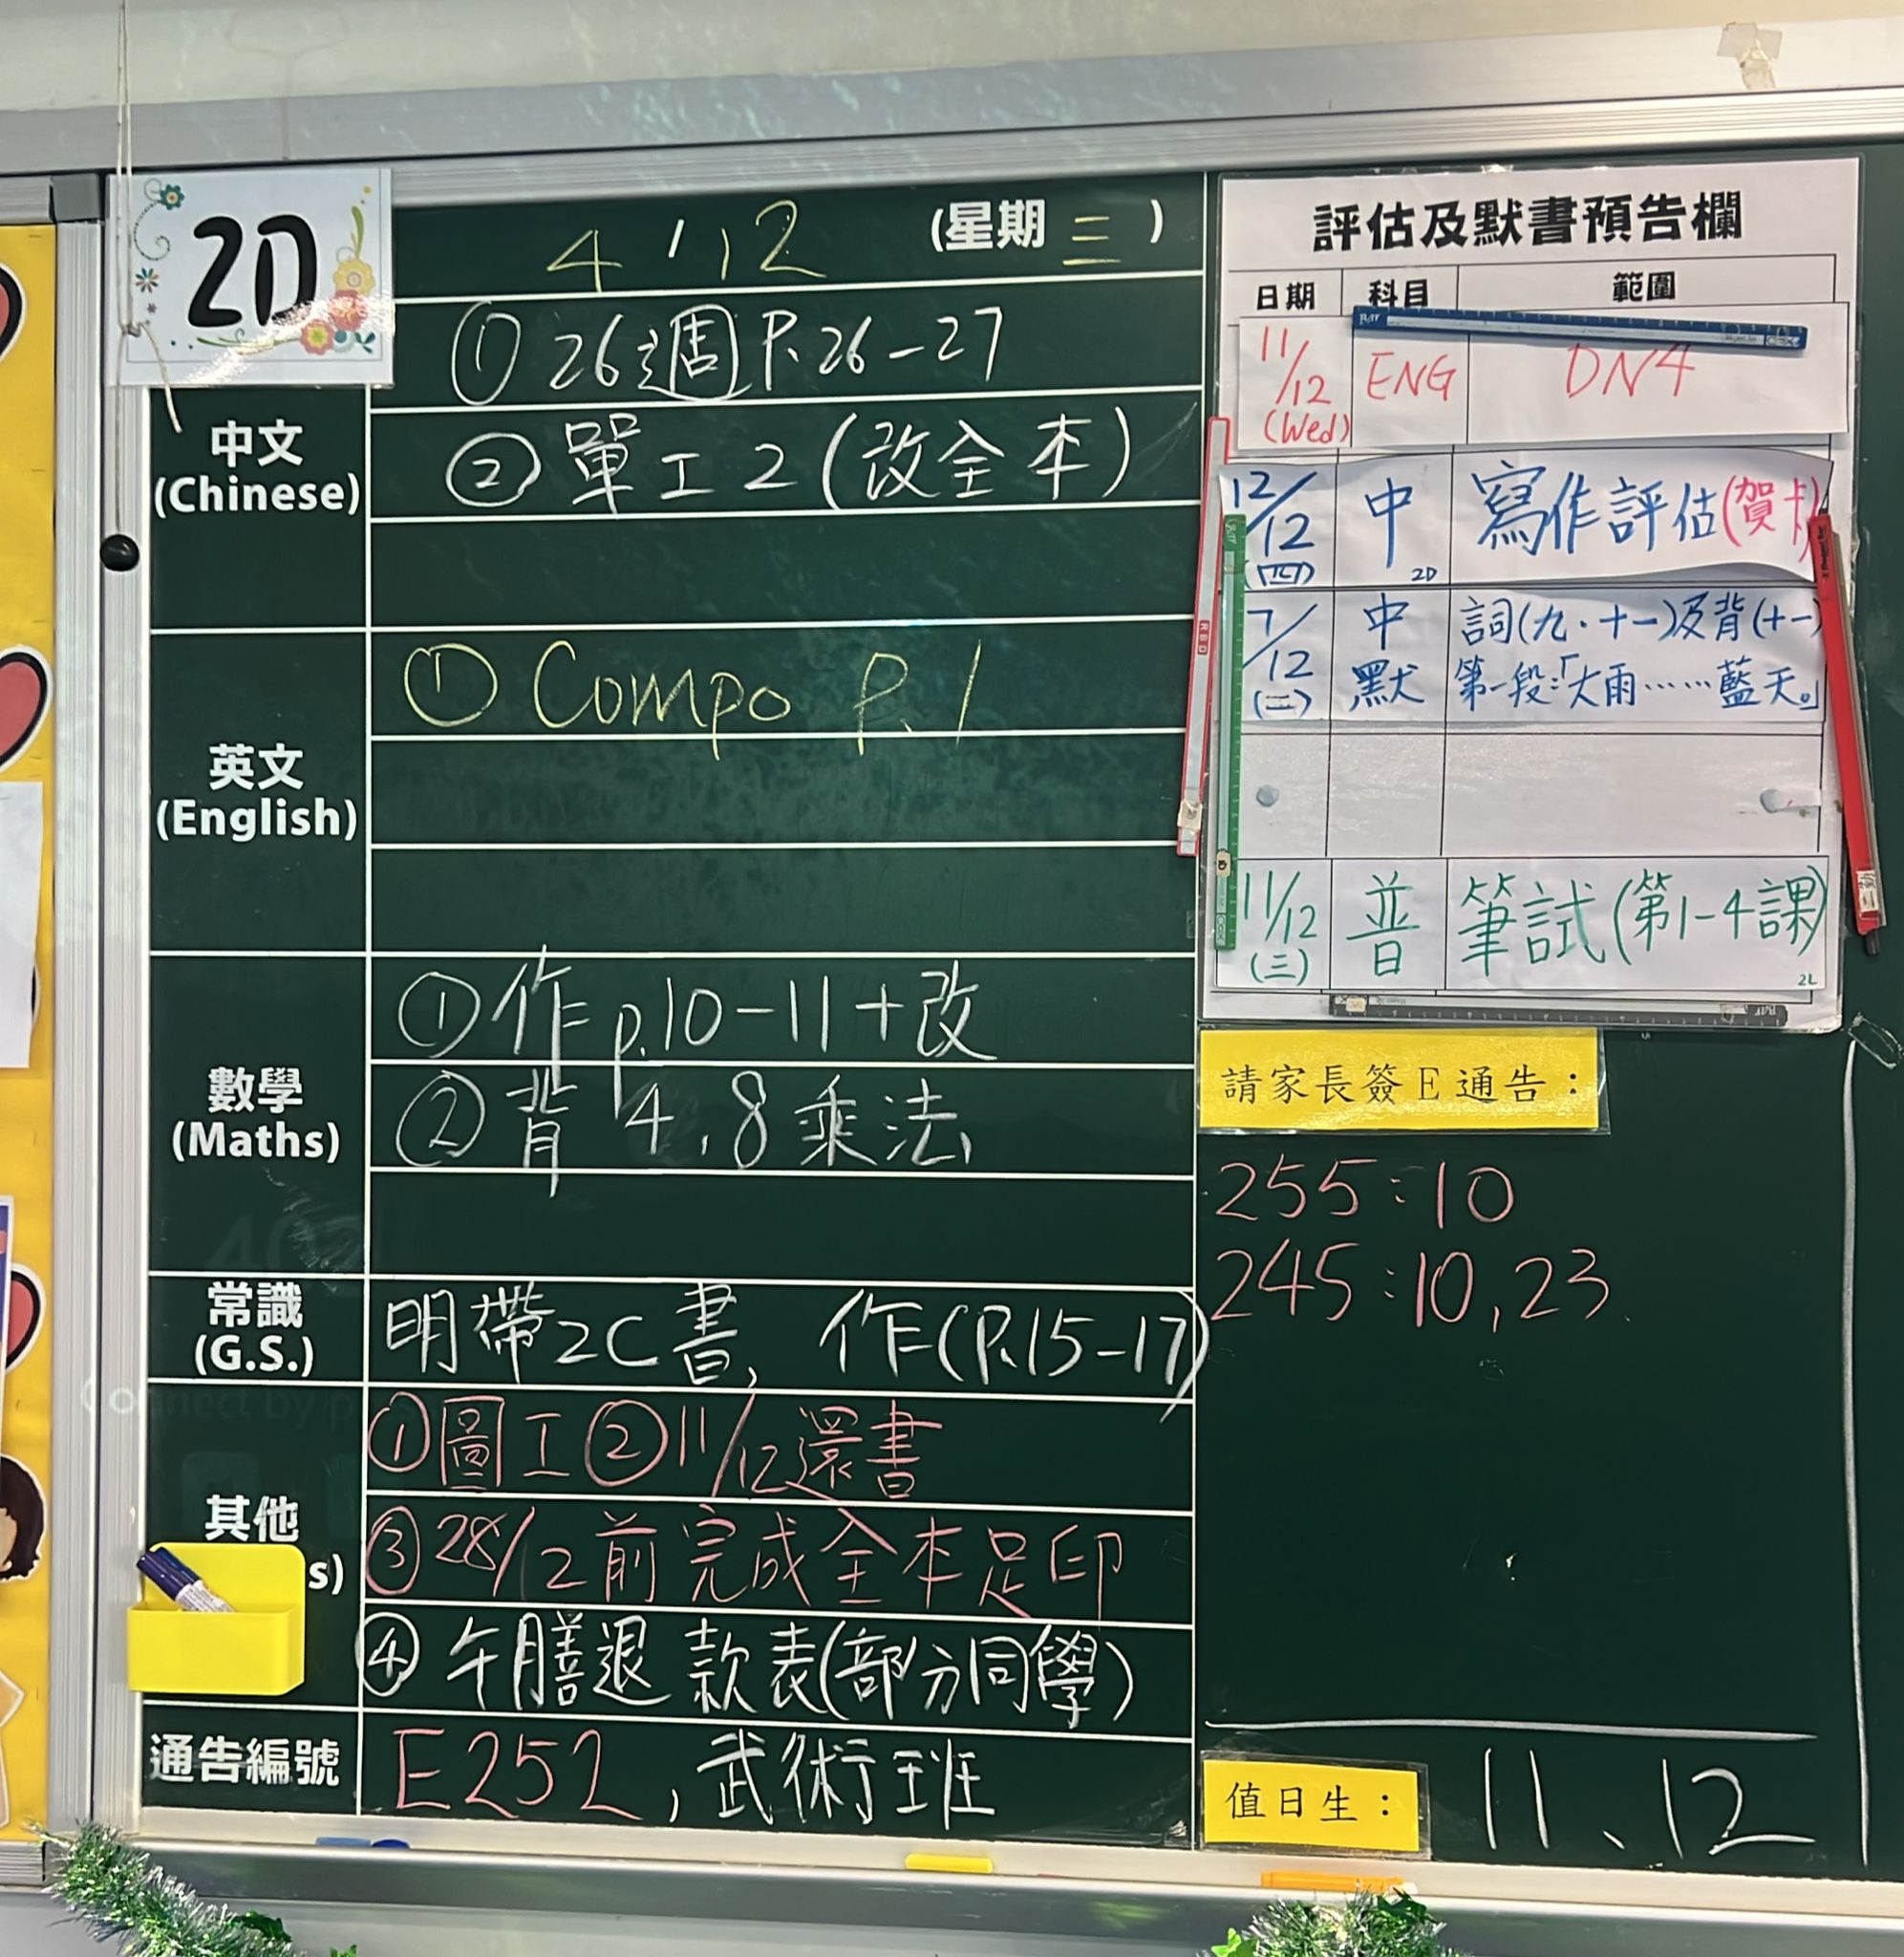 2D
4/12 (星期三)
中文
(Chinese)
① 26週 P.26-27
② 單工2(改全本)
英文
(English)
① Compo P.1
數學
(Maths)
① 作 p.10-11+改
② 背 4,8 乘法
常識
(G.S.)
明帶2C書, 作(P.15-17)
其他
s)
① 圖工 ② 11/12還書
③ 28/2前完成全本足印
④ 午膳退款表(部分同學)
通告編號
E252, 武術班
評估及默書預告欄
日期 科目 範圍
11/12 (Wed) ENG DN4
12/12 (四) 中 2D 寫作評估(賀卡)
17/12 (二) 中默 詞(九·十一)及背(十一)
第一段:「大雨……藍天。」
11/12 (三) 普 筆試(第1-4課) 2L
請家長簽E通告:
255:10
245:10,23
值日生: 11、12